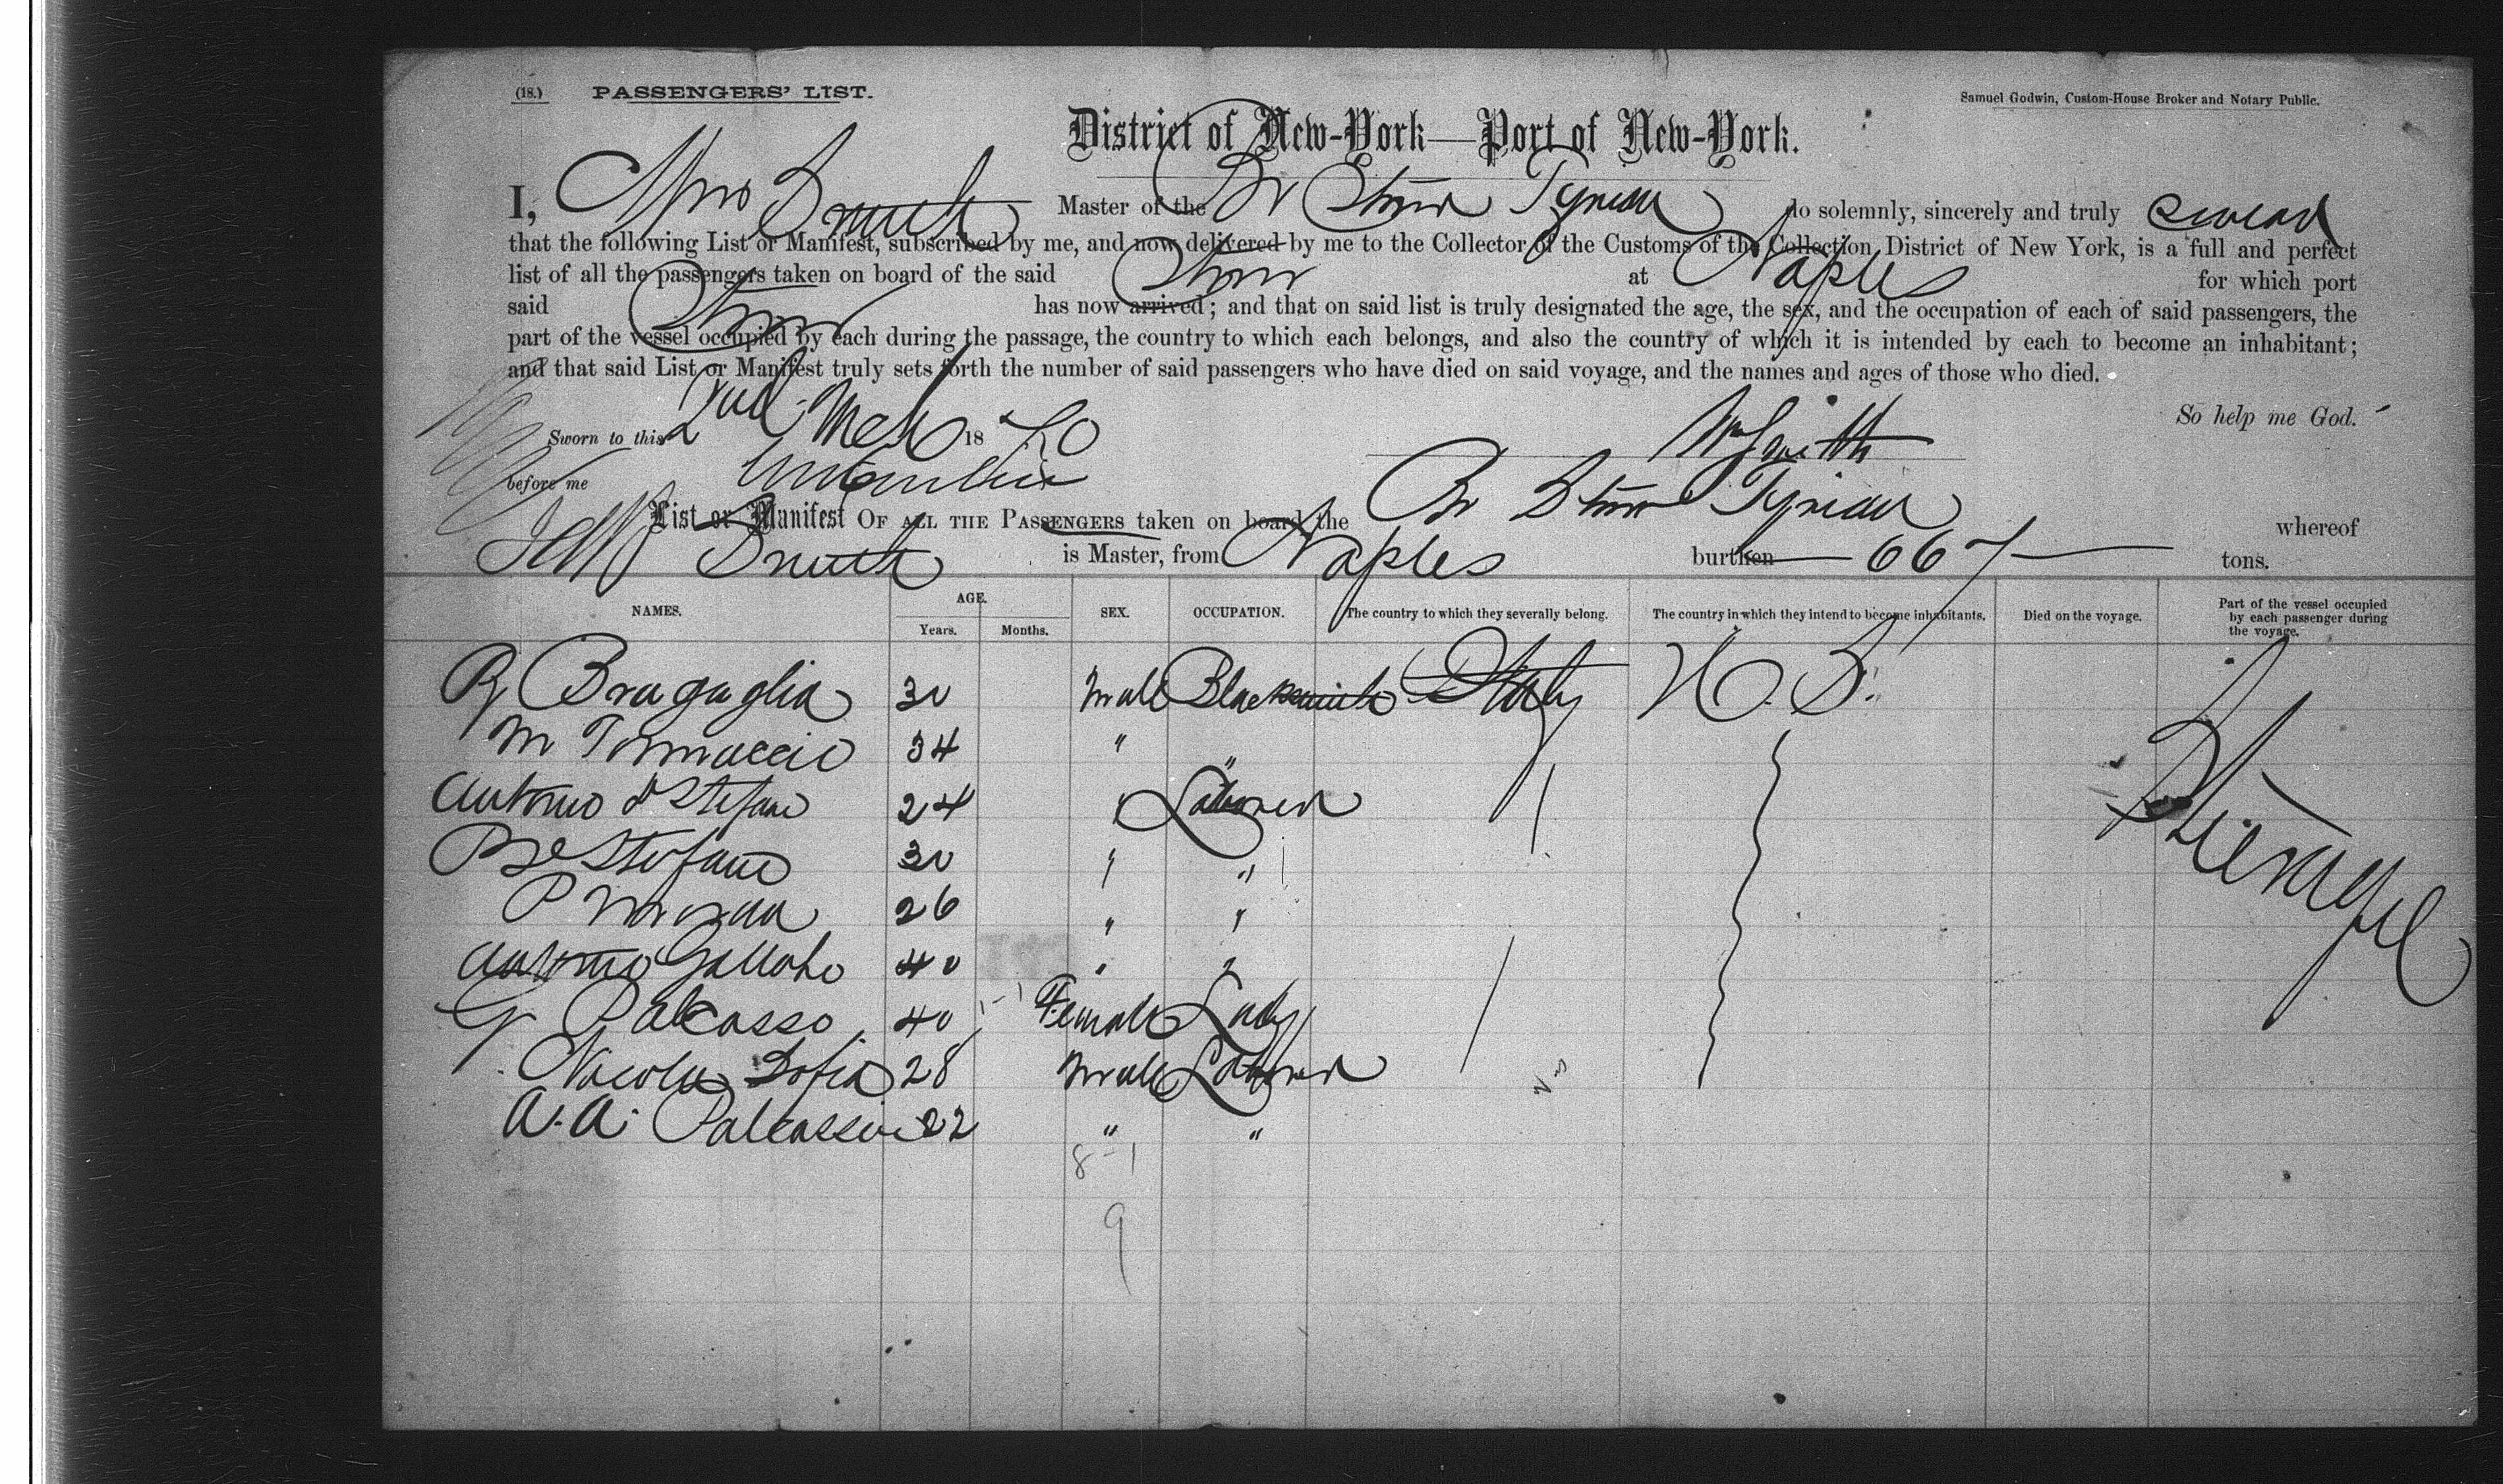 (18.) PASSENGERS' LIST.
Samuel Godwin, Custom-House Broker and Notary Public.
District of New-York—Port of New-York.
I, Smith Master of the Br Stmr Tyrian do solemnly, sincerely and truly swear
that the following List or Manifest, subscribed by me, and now delivered by me to the Collector of the Customs of the Collection District of New York, is a full and perfect
list of all the passengers taken on board of the said Stmr at Naples for which port
said Stmr has now arrived; and that on said list is truly designated the age, the sex, and the occupation of each of said passengers, the
part of the vessel occupied by each during the passage, the country to which each belongs, and also the country of which it is intended by each to become an inhabitant;
and that said List or Manifest truly sets forth the number of said passengers who have died on said voyage, and the names and ages of those who died.
So help me God.
Sworn to this 2nd Mch 1880
Wm Smith
before me
List or Manifest OF ALL THE PASSENGERS taken on board the Br Stmr Tyrian whereof
Smith is Master, from Naples burthen 667 tons.
NAMES. AGE. Years. Months. SEX. OCCUPATION. The country to which they severally belong. The country in which they intend to become inhabitants. Died on the voyage. Part of the vessel occupied by each passenger during the voyage.
R Bragaglia 30 Male Blacksmith Italy U.S. Steerage
M Tomaccio 34 " "
Antonio d Stefano 24 " Laborer
Stefano 30 " "
P 26 " "
Antonio 40 " "
G Palcasso 40 Female Lady
Nicola Sofia 28 Male Laborer
A. A. Palcasso 22 " "
8-1
9